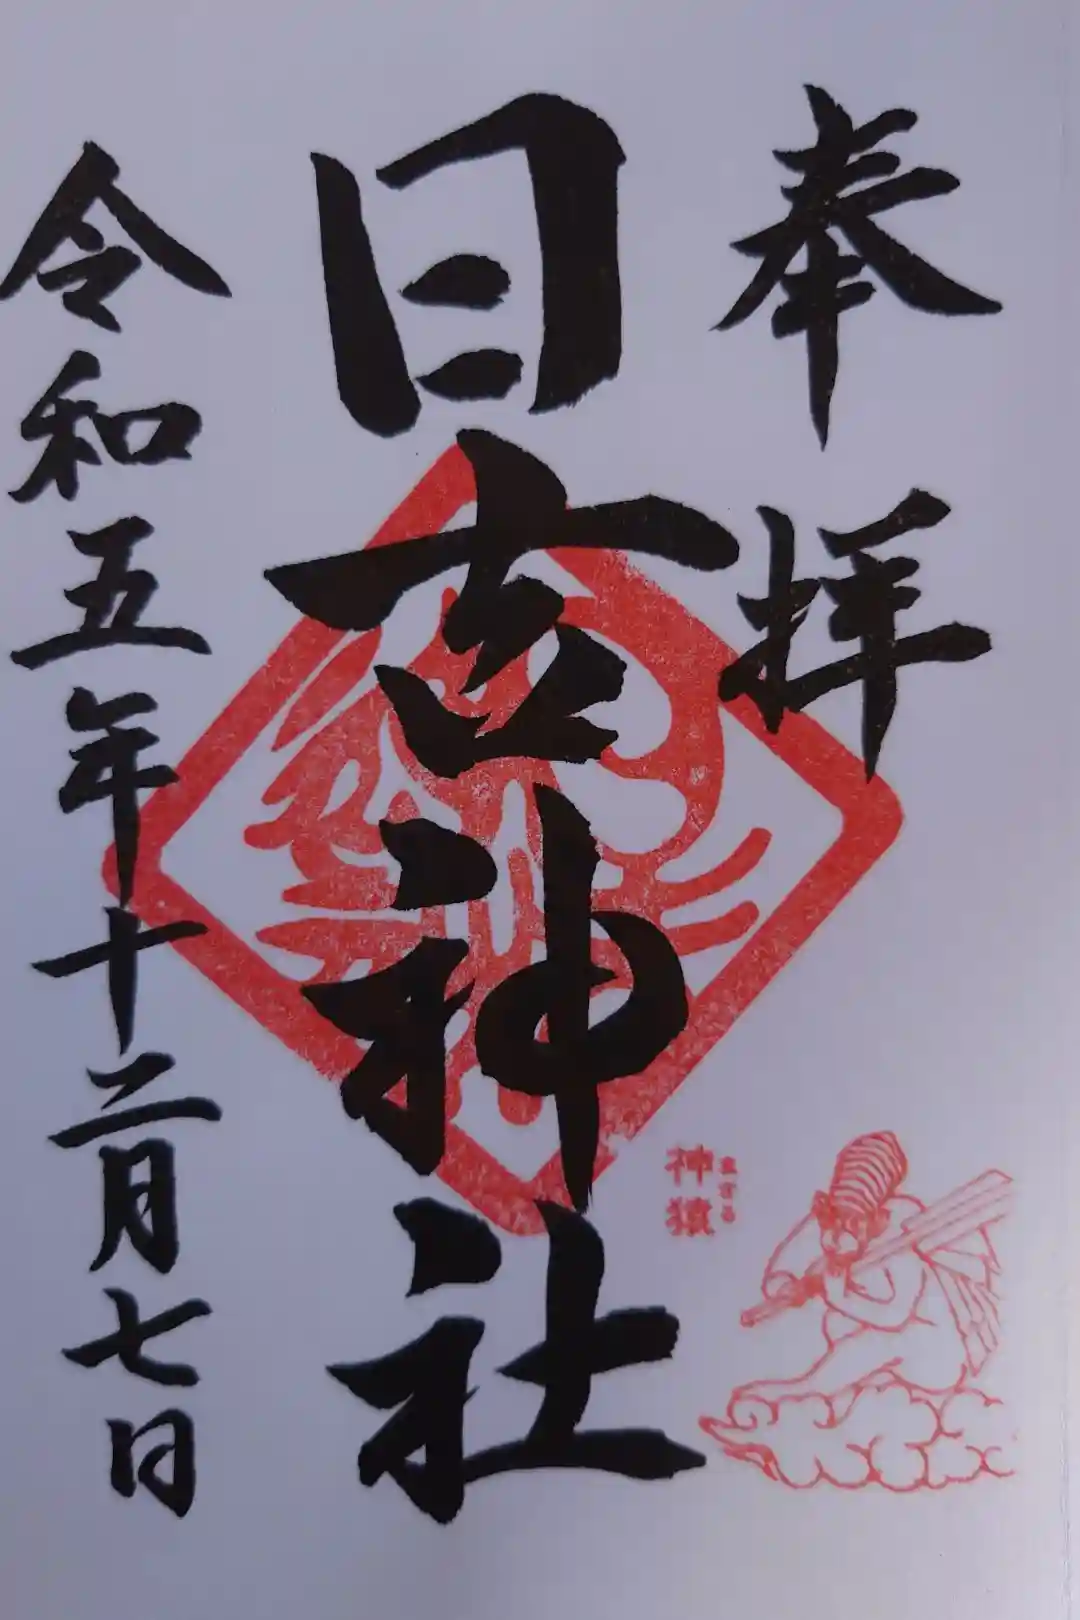 奉拝
日吉神社
まさる
神猿
令和五年十二月七日